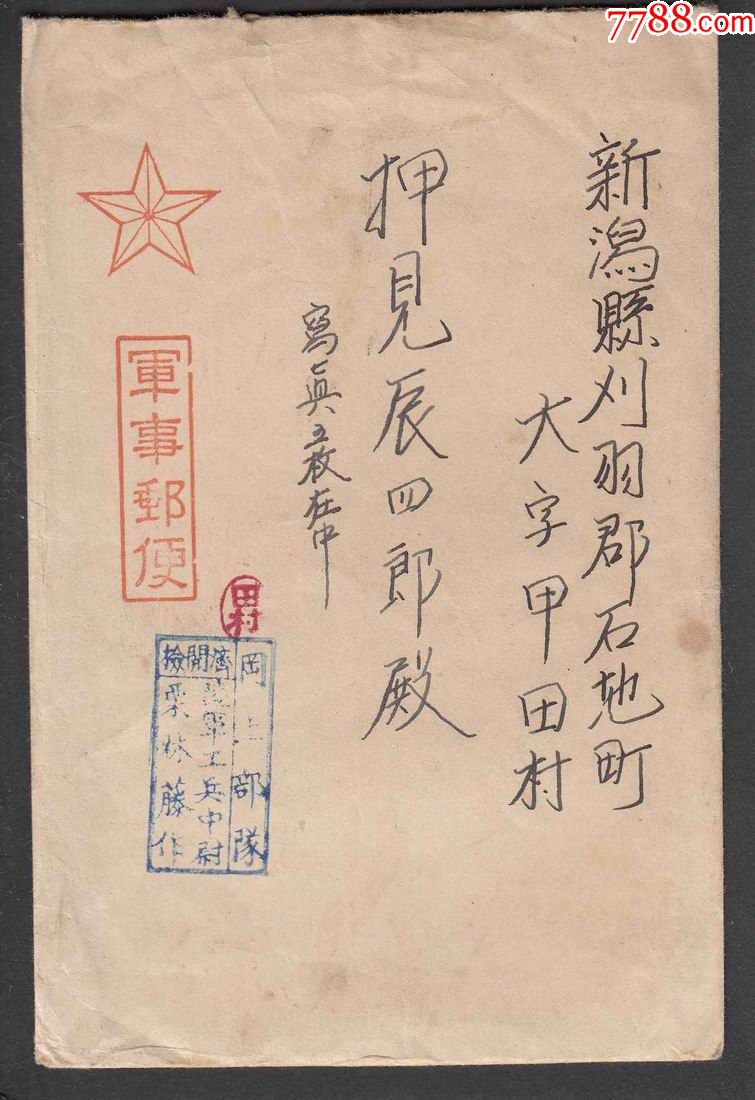 7788.com
新潟縣刈羽郡石地町
大字甲田村
押見辰四郎殿
寫真五枚在中
軍事郵便
田村
岡上部隊
檢開濟
陸軍工兵中尉
栗林藤作